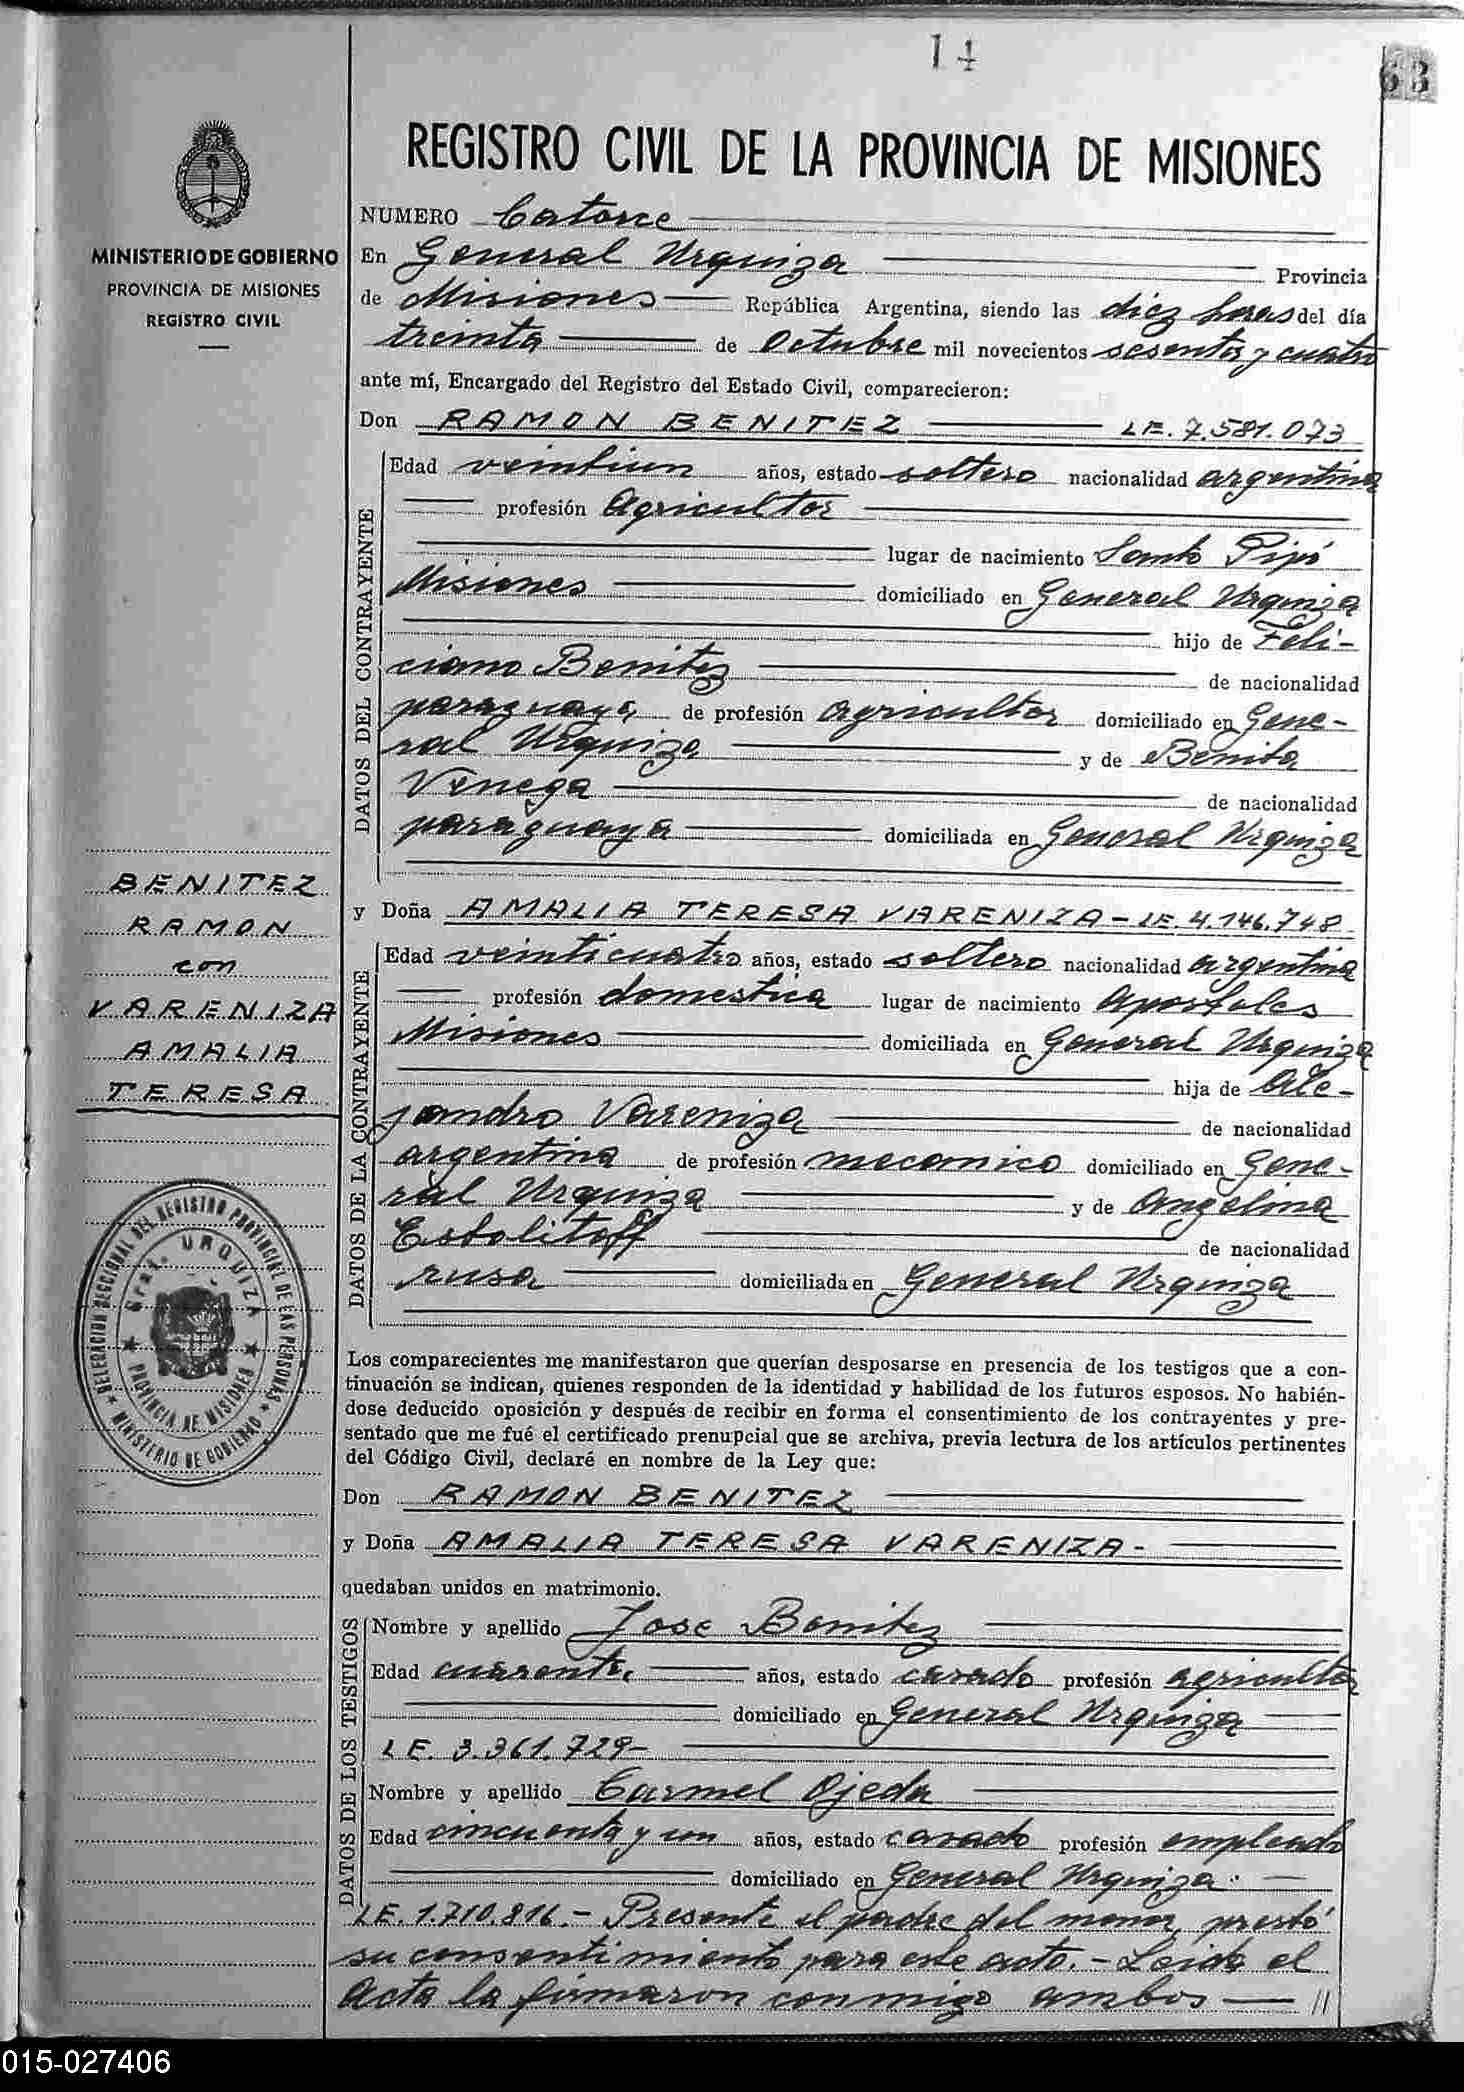 14
63
REGISTRO CIVIL DE LA PROVINCIA DE MISIONES
MINISTERIO DE GOBIERNO
PROVINCIA DE MISIONES
REGISTRO CIVIL
NUMERO Catorce
En General Urquiza Provincia
de Misiones República Argentina, siendo las diez horas del día
treinta de Octubre mil novecientos sesenta y cuatro
ante mí, Encargado del Registro del Estado Civil, comparecieron:
Don RAMON BENITEZ LE. 7.581.073
DATOS DEL CONTRAYENTE
Edad veintiun años, estado soltero nacionalidad argentina
profesión Agricultor
lugar de nacimiento Santo Pipó
Misiones domiciliado en General Urquiza
hijo de Feli-
ciano Benitez de nacionalidad
paraguaya de profesión agricultor domiciliado en Gene-
ral Urquiza y de Benita
Venega de nacionalidad
paraguaya domiciliada en General Urquiza
BENITEZ
RAMON
con
VARENIZA
AMALIA
TERESA
y Doña AMALIA TERESA VARENIZA - LE. 4.146.748
DATOS DE LA CONTRAYENTE
Edad veinticuatro años, estado soltero nacionalidad argentina
profesión domestica lugar de nacimiento Apostoles
Misiones domiciliada en General Urquiza
hija de Ale-
jandro Vareniza de nacionalidad
argentina de profesión mecanico domiciliado en Gene-
ral Urquiza y de Angelina
Estolitoff de nacionalidad
rusa domiciliada en General Urquiza
DELEGACION SECCIONAL DEL REGISTRO PROVINCIAL DE LAS PERSONAS
MINISTERIO DE GOBIERNO
Gral. URQUIZA
PROVINCIA DE MISIONES
Los comparecientes me manifestaron que querían desposarse en presencia de los testigos que a con-
tinuación se indican, quienes responden de la identidad y habilidad de los futuros esposos. No habién-
dose deducido oposición y después de recibir en forma el consentimiento de los contrayentes y pre-
sentado que me fué el certificado prenupcial que se archiva, previa lectura de los artículos pertinentes
del Código Civil, declaré en nombre de la Ley que:
Don RAMON BENITEZ
y Doña AMALIA TERESA VARENIZA -
quedaban unidos en matrimonio.
DATOS DE LOS TESTIGOS
Nombre y apellido Jose Benitez
Edad cuarenta años, estado casado profesión agricultor
domiciliado en General Urquiza
LE. 3.361.729-
Nombre y apellido Carmel Ojeda
Edad cincuenta y un años, estado casado profesión empleado
domiciliado en General Urquiza.
LE. 1.710.816.- Presente el padre del menor, prestó
su consentimiento para este acto.- Leida el
Acta la firmaron conmigo ambos - //
015-027406